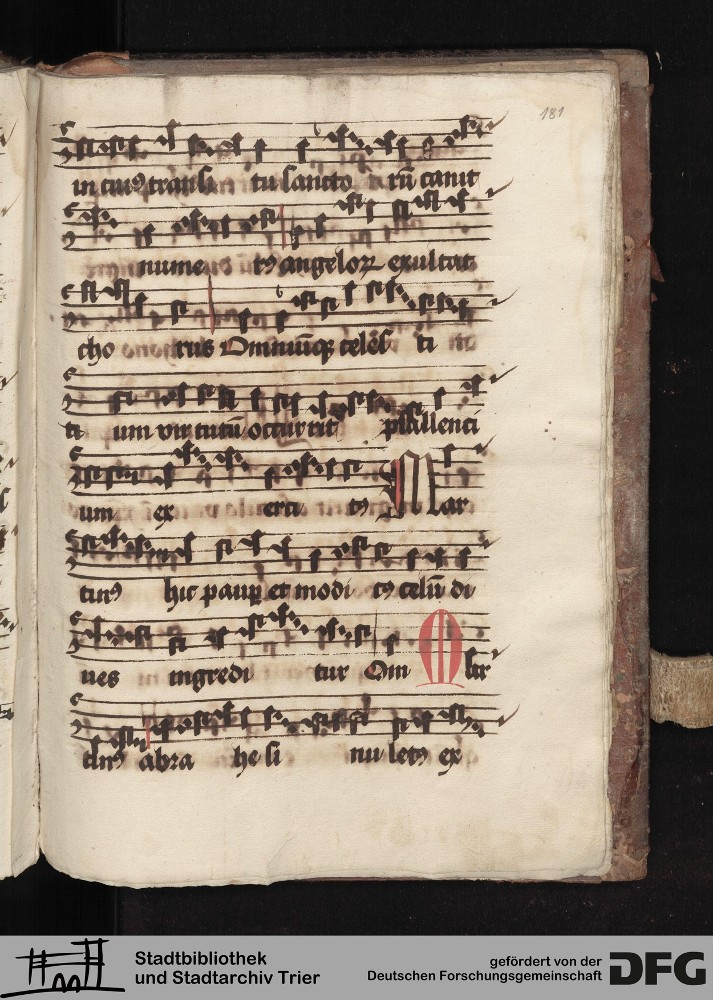 181
in cui9 transi tu sancto rū canit
nume r9 angeloꝝ exultat
cho rus Omniūq; celes ti
um virtutū occurrit psallenci
um ex erci t9 Mar
tin9 hic paup et modi c9 celū di
ues ingredi tur Om Mar
tin9 abra he si nu let9 ex
Stadtbibliothek
und Stadtarchiv Trier
gefördert von der
Deutschen Forschungsgemeinschaft
DFG